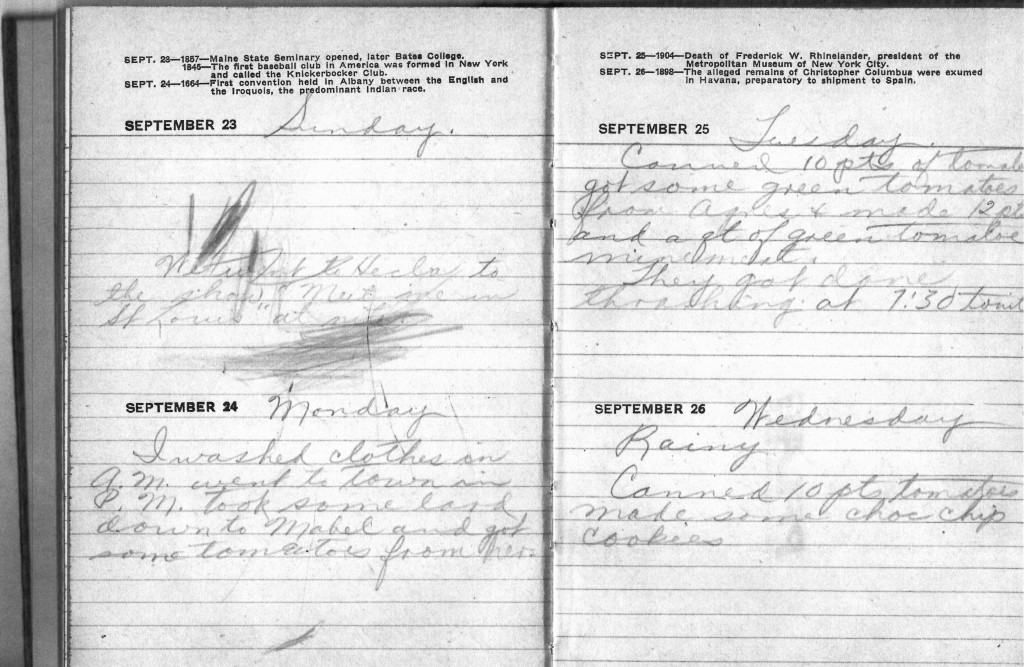 SEPT. 23—1857—Maine State Seminary opened, later Bates College.
1845—The first baseball club in America was formed in New York
and called the Knickerbocker Club.
SEPT. 24—1664—First convention held in Albany between the English and
the Iroquois, the predominant Indian race.
SEPTEMBER 23 Sunday.
We went to Hecla to
the show "Meet me in
St Louis" at nite
SEPTEMBER 24 Monday
I washed clothes in
A.M. went to town in
P.M. took some lard
down to Mabel and got
some tomatoes from her.
SEPT. 25—1904—Death of Frederick W. Rhinelander, president of the
Metropolitan Museum of New York City.
SEPT. 26—1898—The alleged remains of Christopher Columbus were exumed
in Havana, preparatory to shipment to Spain.
SEPTEMBER 25 Tuesday.
Canned 10 pts of tomatoe
got some green tomatoes
from Agnes & made 12 pts
and a qt of green tomatoe
mincemeat.
They got done
thrashing at 7:30 tonit
SEPTEMBER 26 Wednesday
Rainy
Canned 10 pts tomatoes
made some choc chip
cookies